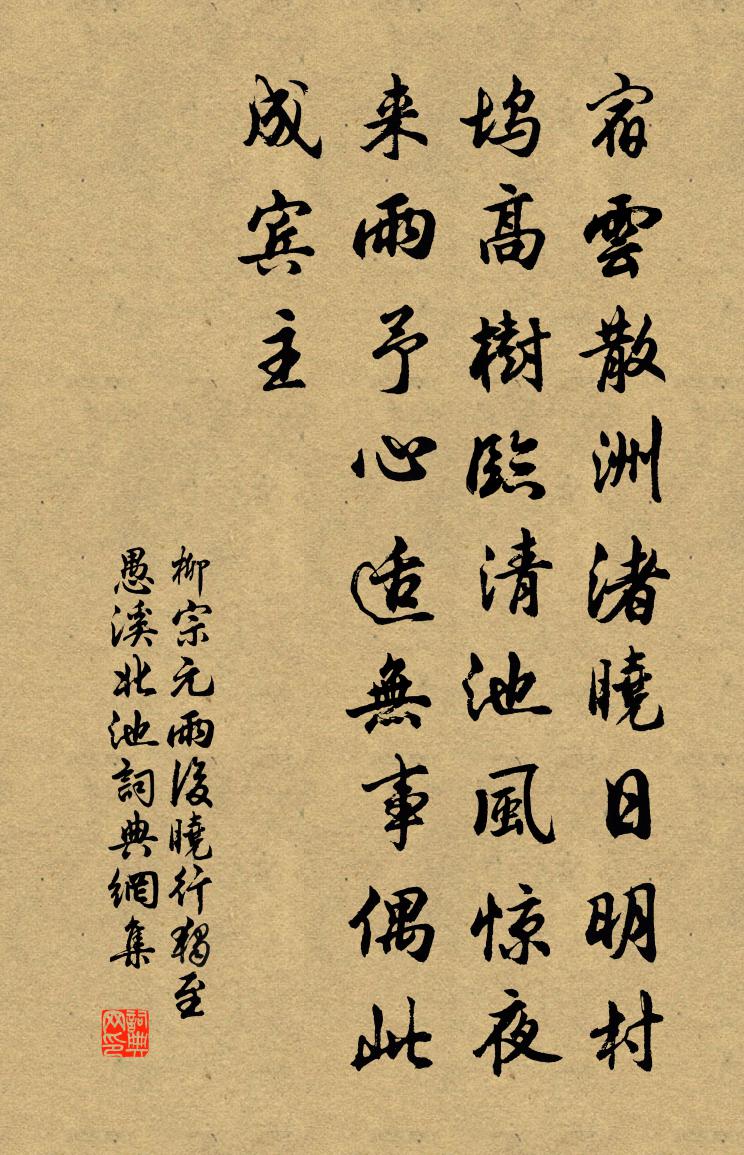 宿雲散洲渚曉日明村
塢高樹臨清池風惊夜
来雨予心适無事偶此
成宾主
柳宗元雨後曉行獨至
愚溪北池詞典網集
詞典
网印